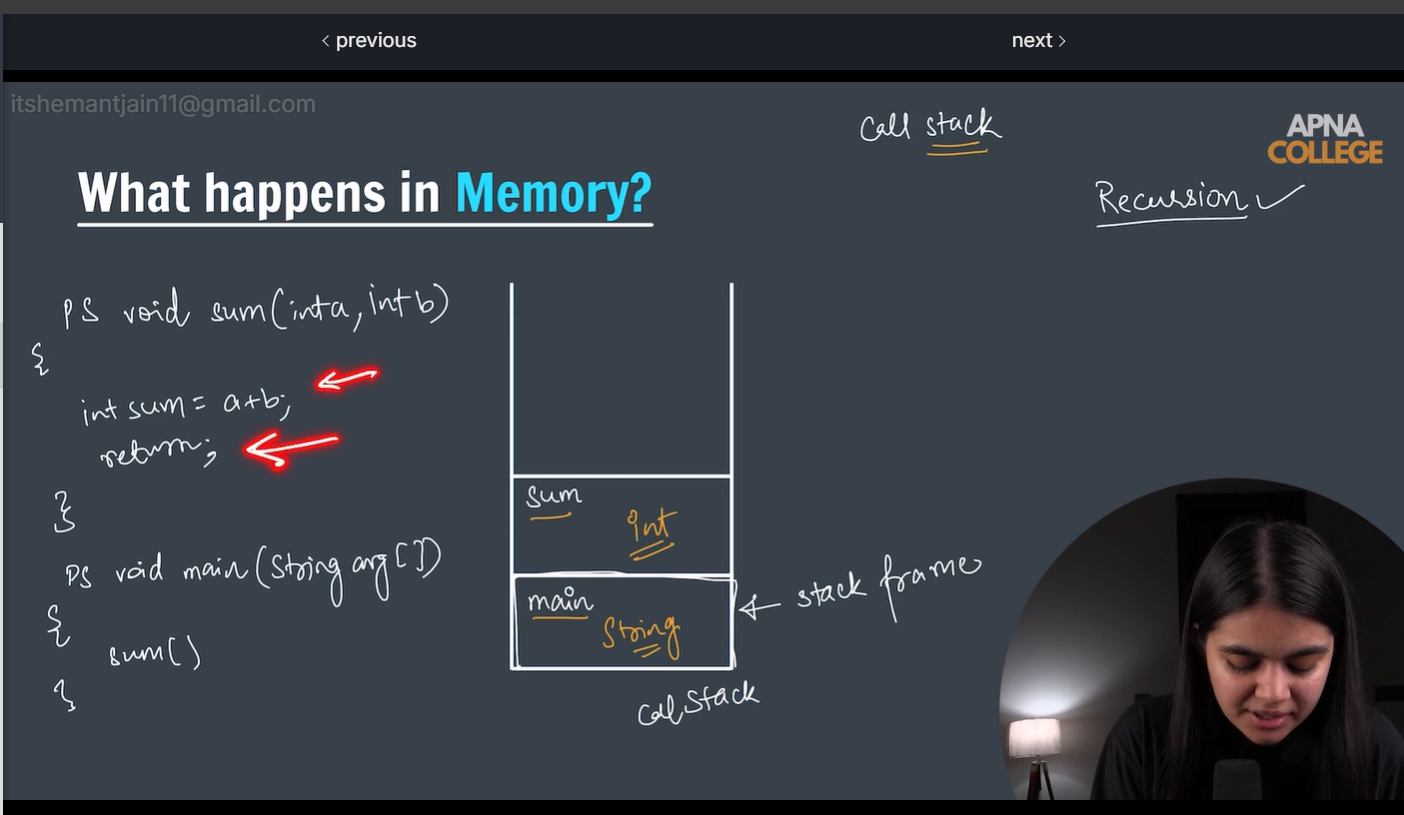 < previous
next >
itshemantjain11@gmail.com
Call stack
APNA
COLLEGE
Recursion ✓
What happens in Memory?
PS void sum(int a, int b)
{
int sum = a+b;
return;
}
PS void main(String arg[])
{
sum()
}
sum
int
main
String
stack frame
Call Stack